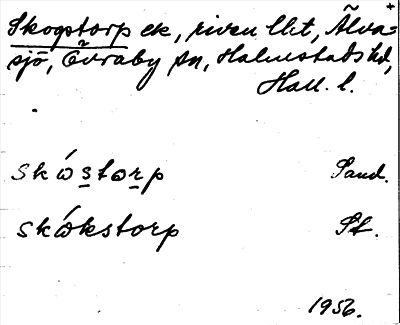 Skogstorp ek, riven lht, Älva=
sjö, Övraby sn, Halmstads hd,
Hall. l.
skóstorp Sand.
skókstorp St.
1956.